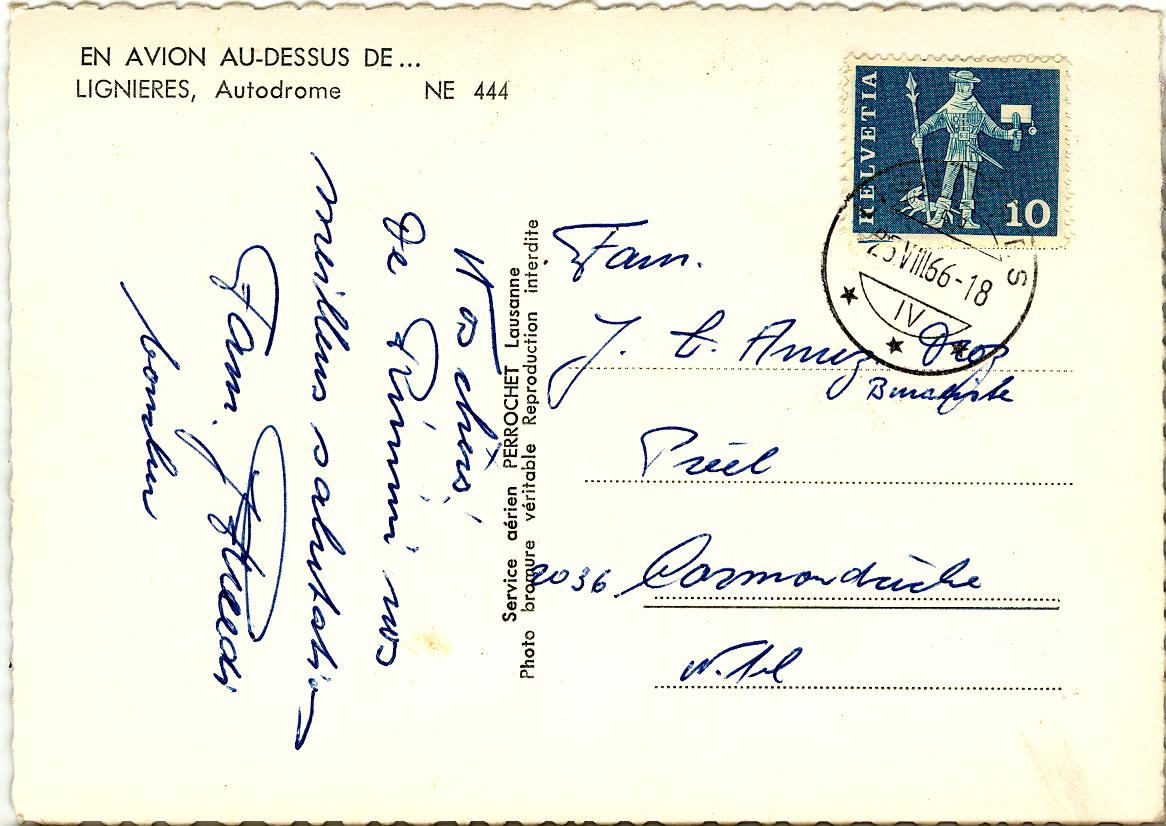 EN AVION AU-DESSUS DE...
LIGNIERES, Autodrome NE 444
HELVETIA
10
VIII66-18
IV
Service aérien PERROCHET Lausanne
Photo bromure véritable Reproduction interdite
De Rimini nos
meilleurs salutations
Fam.
Fam.
J. C. Amez Droz
2036 Cormondrèche
N.tel